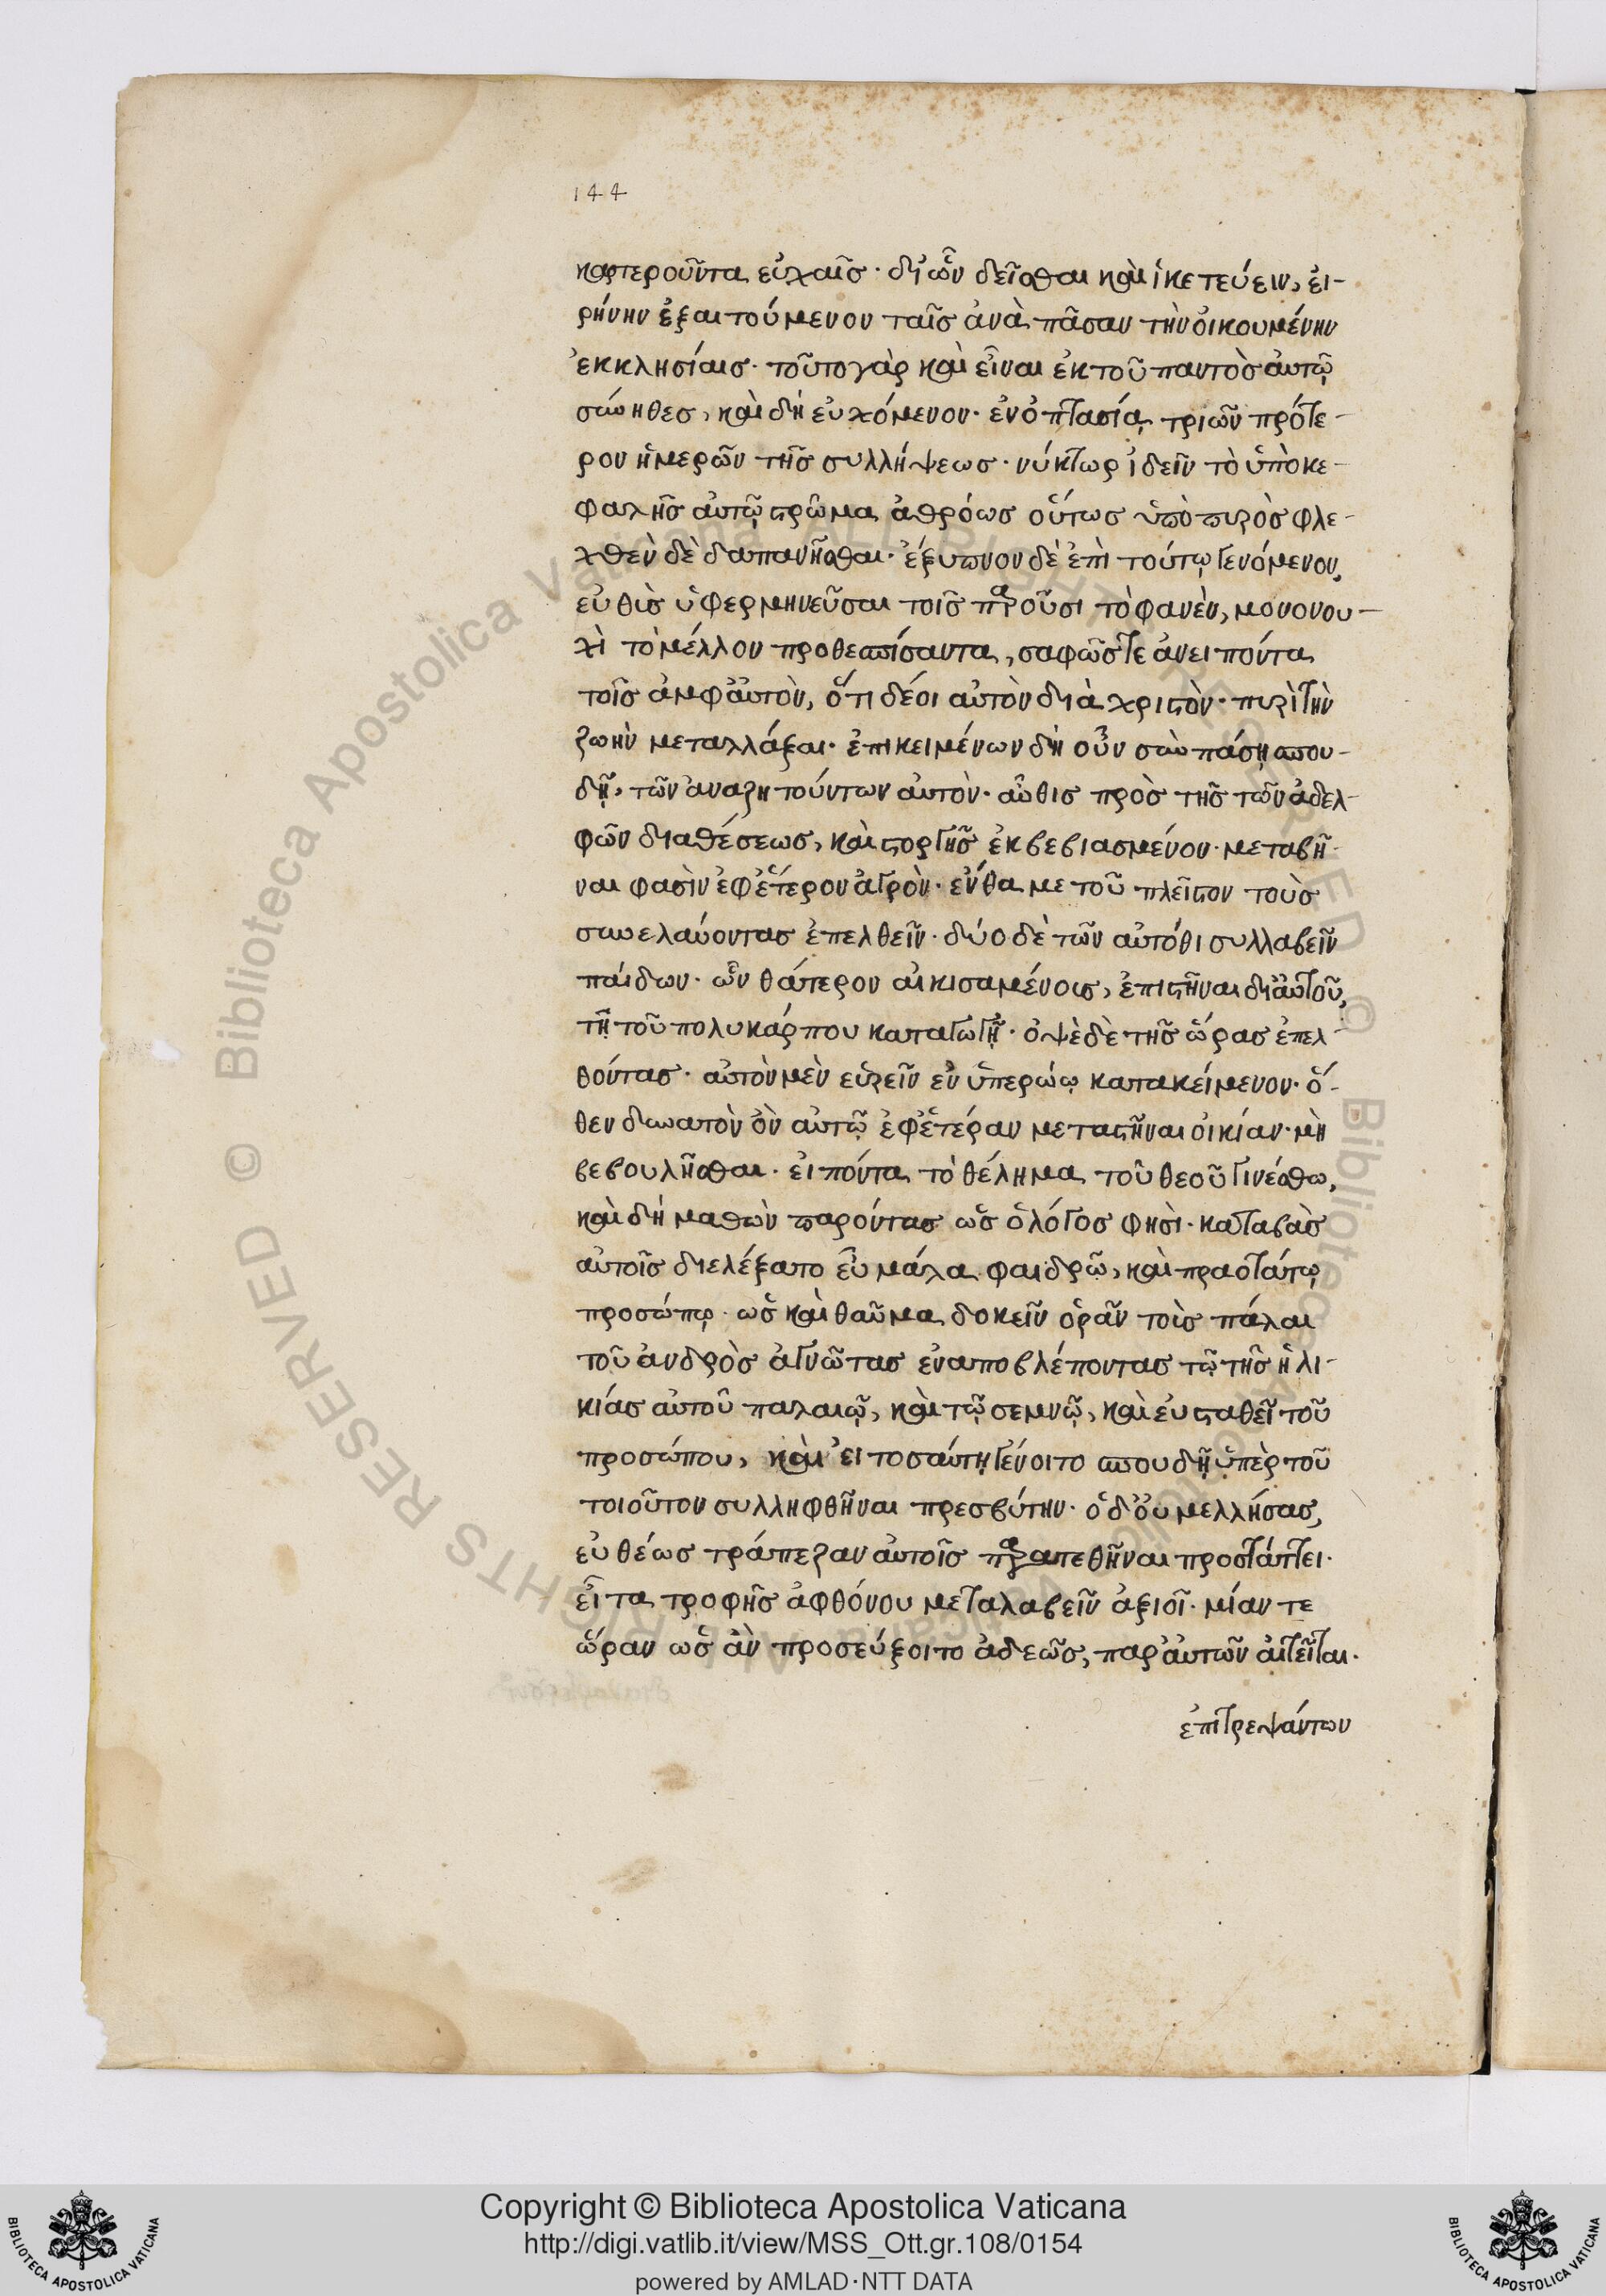 144
καρτεροῦντα εὐχαῖς· δι’ ὧν δεῖσθαι καὶ ἱκετεύειν, εἰ-
ρήνην ἐξαιτούμενον ταῖς ἀνὰ πᾶσαν τὴν οἰκουμένην
ἐκκλησίαις· τοῦτο γὰρ καὶ εἶναι ἐκ τοῦ παντὸς αὐτῷ
σύνηθες, καὶ δὴ εὐχόμενον· ἐν ὀπτασίᾳ τριῶν πρότε-
ρον ἡμερῶν τῆς συλλήψεως· νύκτωρ ἰδεῖν τὸ ὑπὸ κε-
φαλῆς αὐτῷ στρῶμα ἀθρόως οὕτως ὑπὸ πυρὸς φλε-
χθὲν δὲ δαπανῆσθαι· ἔξυπνον δὲ ἐπὶ τούτῳ γενόμενον,
εὐθὺς ὑφερμηνεῦσαι τοῖς παροῦσι τὸ φανὲν, μονονου-
χὶ τὸ μέλλον προθεσπίσαντα, σαφῶς τε ἀνειπόντα
τοῖς ἀμφ’ αὐτὸν, ὅτι δέοι αὐτὸν διὰ χριστὸν· πυρὶ τὴν
ζωὴν μεταλλάξαι· ἐπικειμένων δὴ οὖν σὺν πάσῃ σπου-
δῇ, τῶν ἀναζητούντων αὐτὸν· αὖθις πρὸς τῆς τῶν ἀδελ-
φῶν διαθέσεως, καὶ στοργῆς ἐκβεβιασμένον· μεταβῆ-
ναι φασὶν ἐφ’ ἕτερον ἀγρὸν· ἔνθα με τοῦ πλεῖστον τοὺς
συνελαύοντας ἐπελθεῖν· δύο δὲ τῶν αὐτόθι συλλαβεῖν
παίδων· ὧν θάτερον αἰκισαμένους, ἐπιστῆναι δι’ αὐτοῦ,
τῇ τοῦ πολυκάρπου καταγωγῇ· ὀψὲ δὲ τῆς ὥρας ἐπελ-
θόντας· αὐτὸν μὲν εὑρεῖν ἐν ὑπερώῳ κατακείμενον· ὅ-
θεν δυνατὸν ὂν αὐτῷ ἐφ’ ἑτέραν μεταστῆναι οἰκίαν· μὴ
βεβουλῆσθαι· εἰπόντα τὸ θέλημα τοῦ θεοῦ γινέσθω,
καὶ δὴ μαθὼν παρόντας ὡς ὁ λόγος φησὶ· καταβὰς
αὐτοῖς διελέξατο εὖ μάλα φαιδρῷ, καὶ πραοτάτῳ
προσώπῳ· ὡς καὶ θαῦμα δοκεῖν ὁρᾶν τοὶς πάλαι
τοῦ ἀνδρὸς ἀγνῶτας ἐναποβλέποντας τῷ τῆς ἡλι-
κίας αὐτοῦ παλαιῷ, καὶ τῷ σεμνῷ, καὶ εὐσταθεῖ τοῦ
προσώπου, καὶ εἰ τοσαύτη γένοιτο σπουδὴ ὑπὲρ τοῦ
τοιοῦτον συλληφθῆναι πρεσβύτην· ὁ δ’ οὐ μελλήσας,
εὐθέως τράπεζαν αὐτοῖς παρατεθῆναι προστάττει·
εἶτα τροφῆς ἀφθόνου μεταλαβεῖν ἀξιοῖ· μίαν τε
ὥραν ὡς ἂν προσεύξοιτο ἀδεῶς, παρ’ αὐτῶν αἰτεῖται·
ἐπιτρεψάντων
Copyright © Biblioteca Apostolica Vaticana
http://digi.vatlib.it/view/MSS_Ott.gr.108/0154
powered by AMLAD·NTT DATA